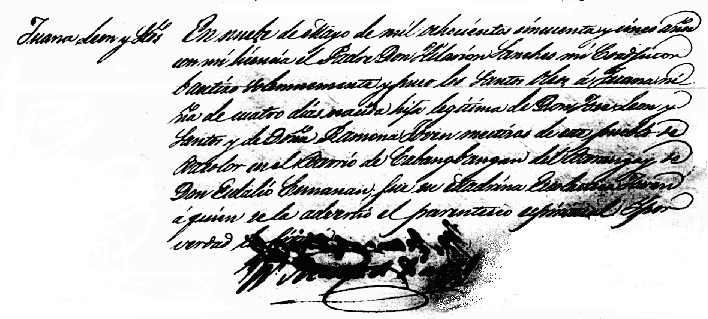 Juana Leon y Stos
En nueve de Mayo de mil ochocientos cincuenta y cinco años
con mi licencia el Padre Don Hilarion Sanches mi Coadjutor
bautizo solemnemente y puso los Santos Oleos á Juana ni
ña de cuatro dias nacida hija legitima de Don Jose Leon y
Santos y de Doña Ramona mestizos de este pueblo de
Bacolor en el Barrio de Cabangbangan del Barangay de
Don Eulalio Cunanan, fue su Madrina
a quien se le advirtió el parentesco espiritual y por
verdad lo firmé